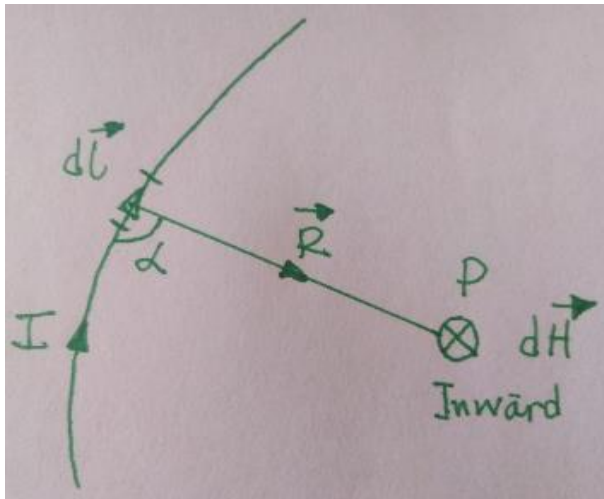 dl
R
α
P
I
dH
Inward